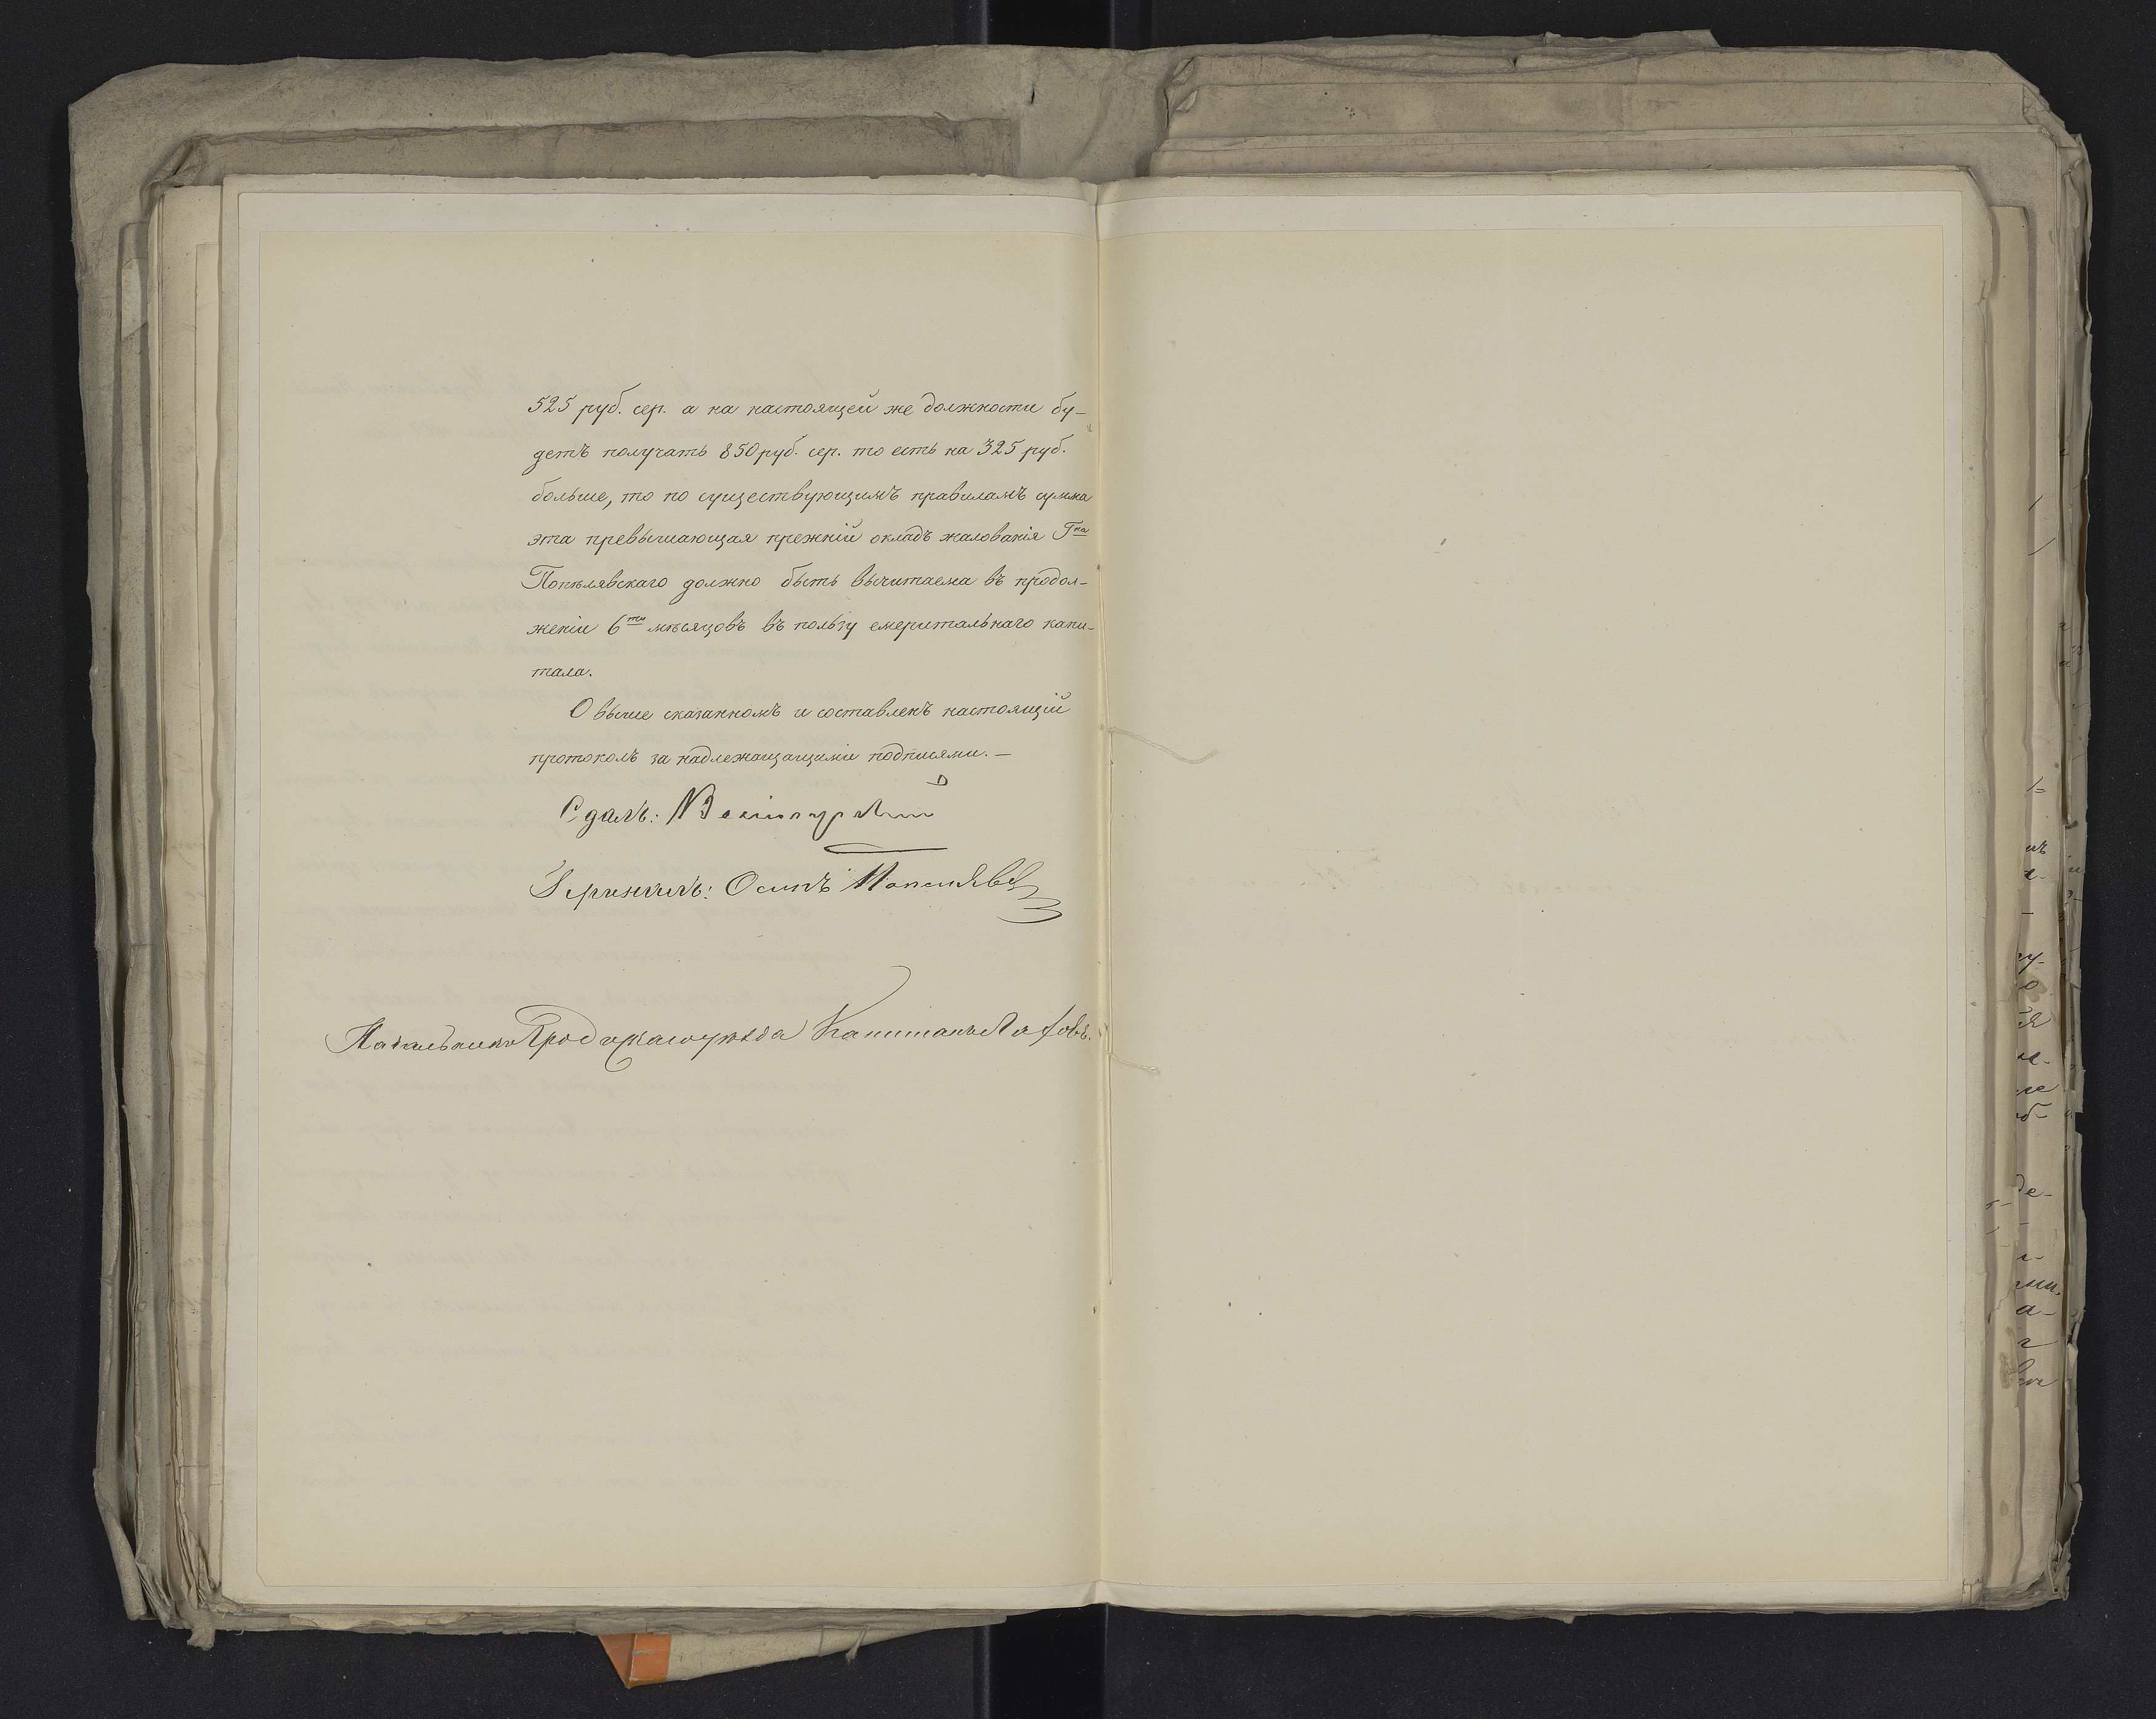 525 руб. сер. а на настоящей же должности бу-
детъ получать 850 руб. сер. то есть на 325 руб.
больше, то по существующимъ правиламъ сумма
эта превышающая прежній окладъ жалованія Гна
Попѣлявскаго должно быть вычитаема въ продол-
женіи 6ти мѣсяцовъ въ пользу емеритальнаго капи-
тала.
О выше сказанномъ и составленъ настоящій
протоколъ за надлежащащими подписями. —
Сдалъ:
Принялъ: Осипъ Попелявск
Начальникъ уѣзда Капитанъ